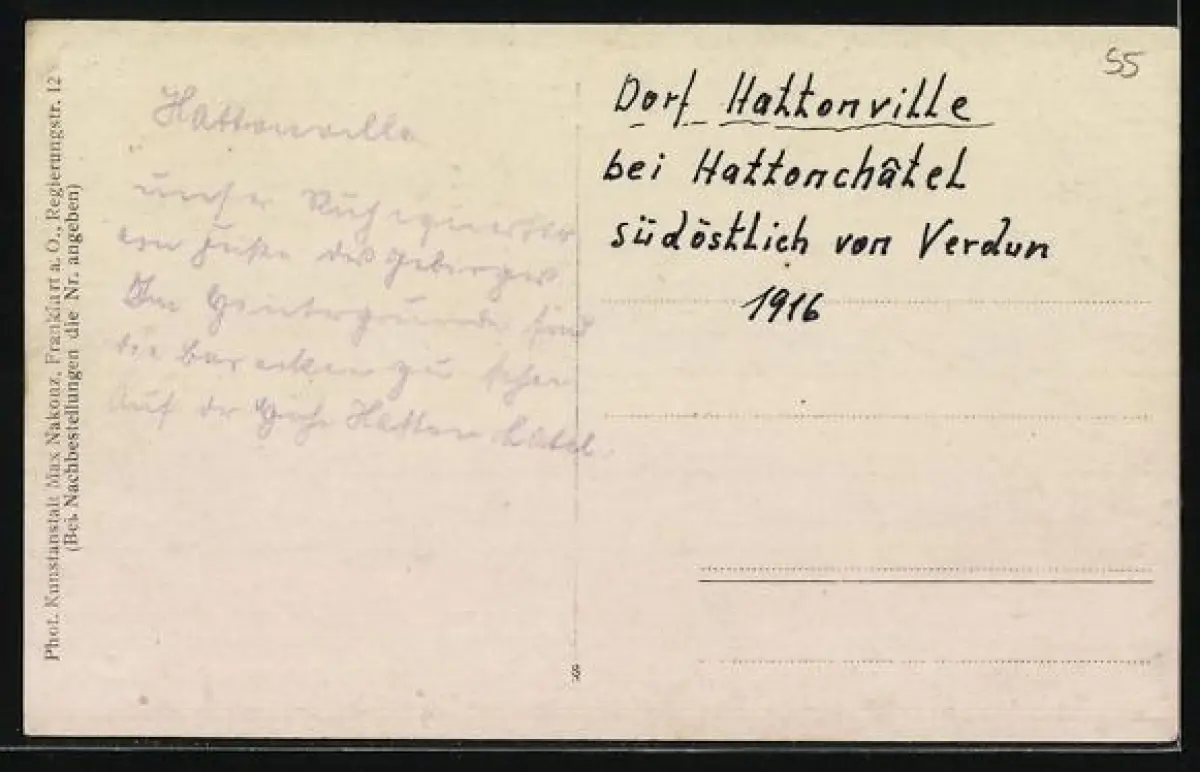 Phot. Kunstanstalt Max Nakonz, Frankfurt a. O., Regierungstr. 12
(Bei Nachbestellungen die Nr. angeben)
Hattonville
unser Ruhequartier
am Fuße des Gebirges
Im Hintergrunde sind
die Baracken zu sehen
Auf der Höhe Hatton Catel.
55
Dorf Hattonville
bei Hattonchâtel
südöstlich von Verdun
1916